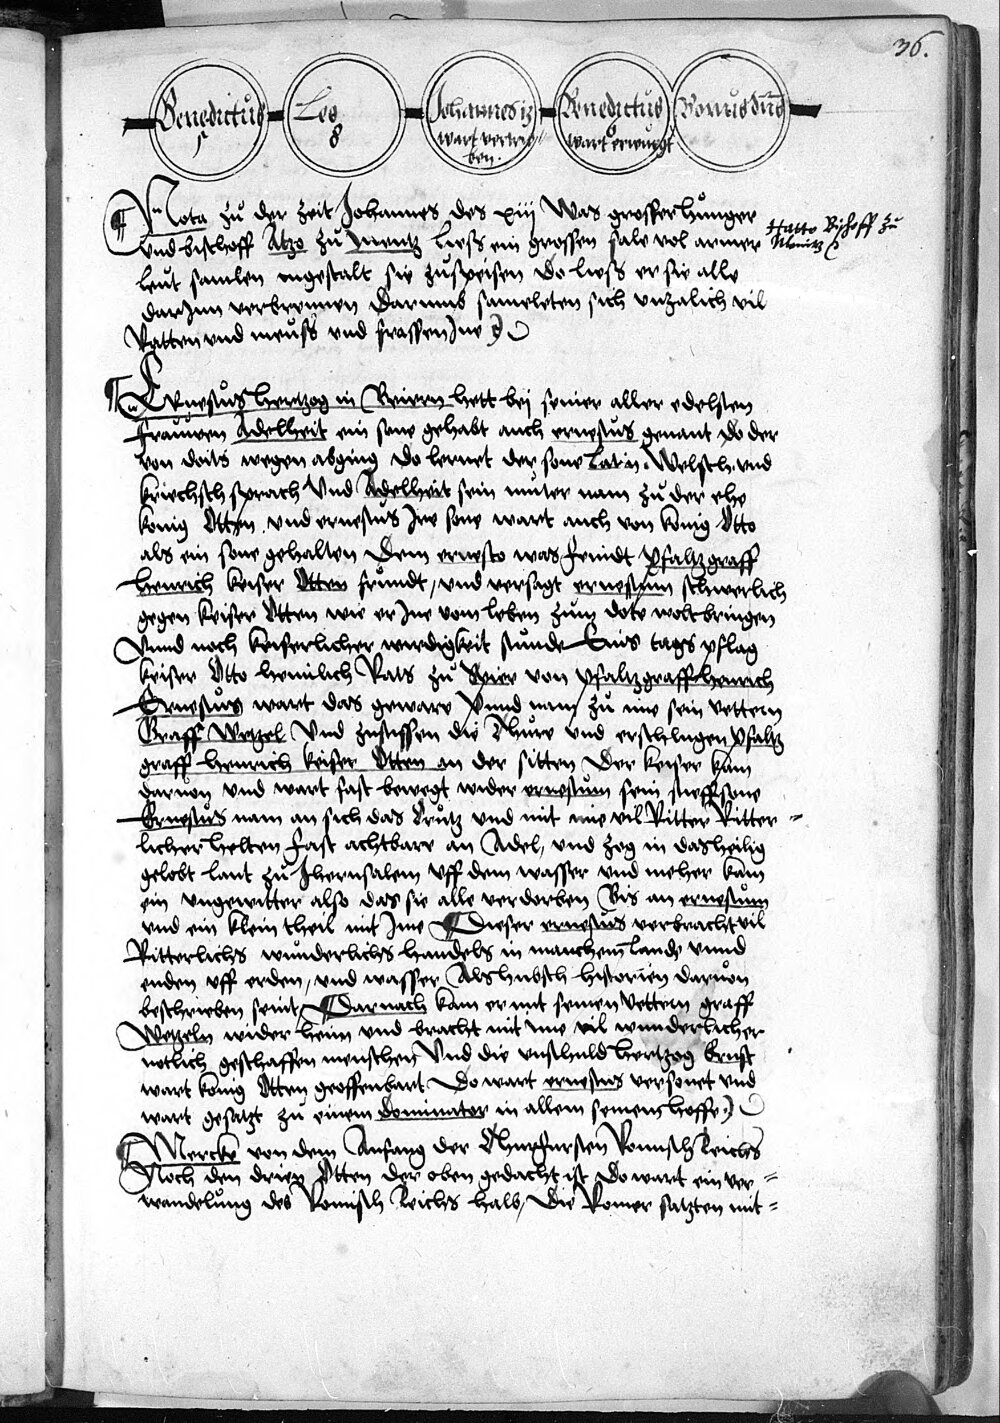 36.
Benedictus 5
Leo 8
Johannes 13 wart vertrieben.
Benedictus 6 wart erwurgt
Bonus dns
Nota zu der zeit Johannes des xiij Was grosser hunger
Hatto Bischoff zu Mentz
und bischoff Atzo zu Mentz liess ein grossen sale vol armer
leut samlen ingestalt sie zuspeisen Do liess er sie alle
darInn verbrennen Darumb sameleten sich unzalich vil
Ratten und meuss und frassen Ine
Ernestus hertzog in Beiern hett bei seiner aller edelsten
frauwen Adelheit ein sone gehabt auch ernestus genant Do der
von doits wegen abging Do lernet der sone Latin. Welsch und
kriechsch sprach Und Adelheit sein muter nam zu der ehe
konig Otten und ernestus Ine sone wart auch von konig Otto
als ein sone gehalten Dem ernesto was feindt Pfaltzgraff
henrich keiser Otten frundt, und versagt ernestum schwerlich
gegen keiser Otten wie er Ine vom leben zum dote wolt bringen
Unnd noch keiserlicher wirdigkeit stunde Eins tags pflag
keiser Otto heimlich Rats zu Speier von pfaltzgraff henrich
Ernestus wart das geware Unnd nam zu ime sein vettern
Graff Wetzel Und zustissen die Thure und erschlugen pfaltz
graff henrich keiser Otten an der sitten Der keiser kam
darvon und wart fast bewegt wider ernestum sein stieffsone
Ernestus nam an sich das Crutz und mit ime vil Ritter Ritter=
licher helten fast achtbare an Adel, und zog in das heilig
gelobt lant zu Jherusalem uff dem wasser und meher kam
ein ungewitter also das sie alle verdorben Bis an ernestum
und ein klein theil mit Ime Dieser ernestus verbracht vil
Ritterlichs wunderlichs handels in manchem Lande unnd
enden uff erden, und wasser Als hubsch historien darvon
beschrieben seint Darnach kam er mit seinem Vettern graff
Wetzeln wider heim und bracht mit ime vil wunderlicher
geschaffen menschen Und die unschuld hertzog Ernst
wart konig Otten geoffenbart Do wart ernestus versonet und
wart gesatzt zu einem dominator in allem seinem hoffe
Mercke von dem Anfang der Churfursten Romisch Reichs
Noch den drien Otten der oben gedacht ist Do wart ein ver=
wandelung des Romisch Reichs halb, Die Romer satzten mit=